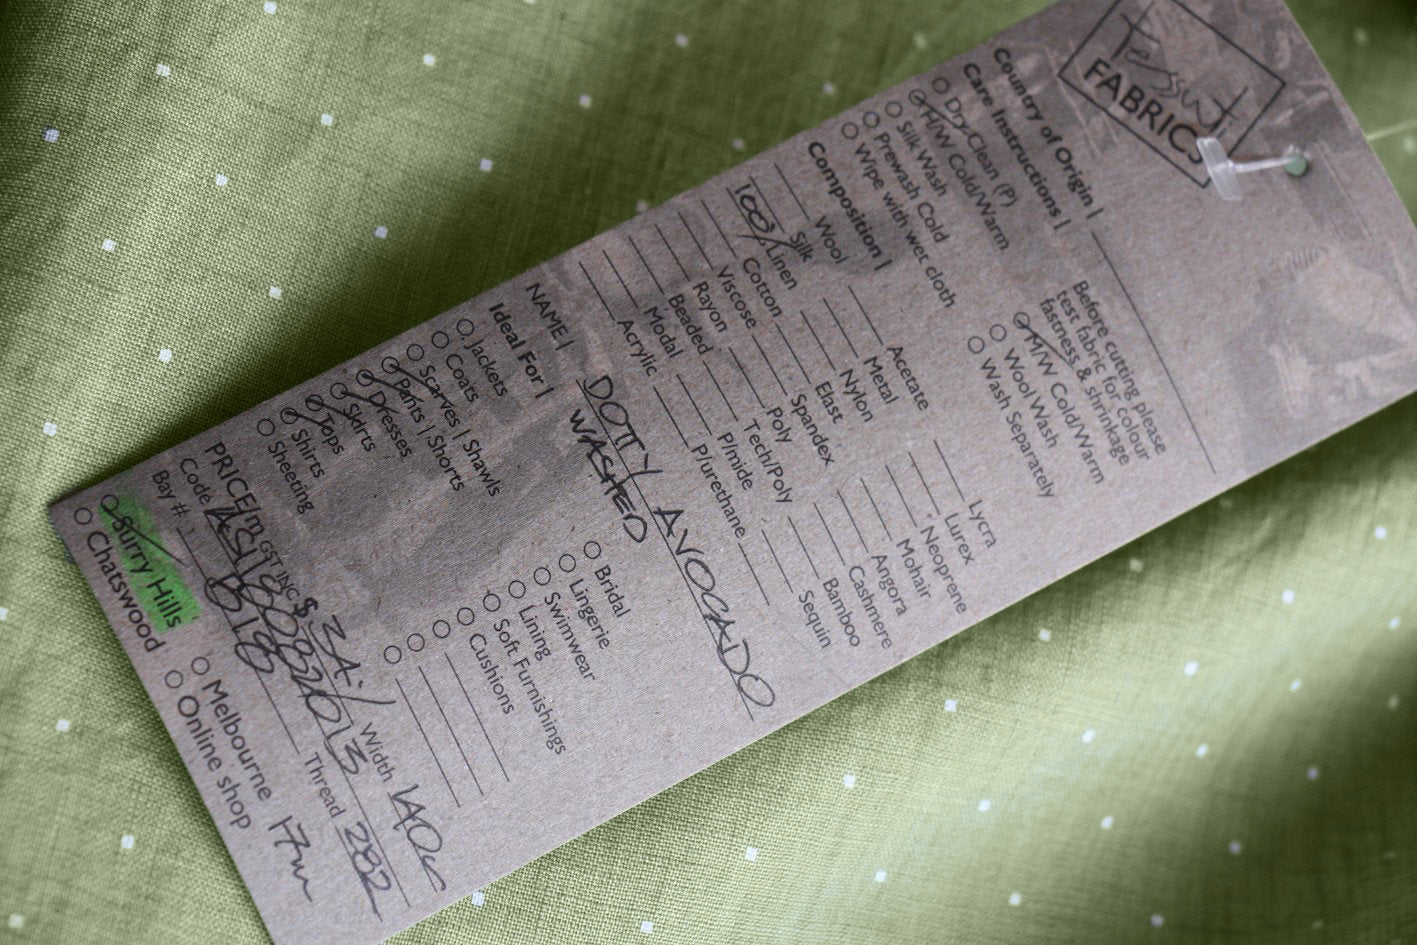 Tessuti
FABRICS
Country of Origin |
Care Instructions |
Dry-Clean (P)
H/W Cold/Warm
Silk Wash
Prewash Cold
Wipe with wet cloth
Before cutting please
test fabric for colour
fastness & shrinkage
H/W Cold/Warm
Wool Wash
Wash Separately
Composition |
Wool
Silk
100% Linen
Cotton
Viscose
Rayon
Beaded
Modal
Acrylic
Acetate
Metal
Nylon
Elast
Spandex
Poly
Tech/Poly
P/mide
P/urethane
Lycra
Lurex
Neoprene
Mohair
Angora
Cashmere
Bamboo
Sequin
NAME | DOTTY AVOCADO
WASHED
Ideal For |
Jackets
Coats
Scarves | Shawls
Pants | Shorts
Dresses
Skirts
Tops
Shirts
Sheeting
Bridal
Lingerie
Swimwear
Lining
Soft Furnishings
Cushions
PRICE/m GST INC $ Width 140c
Code Thread 282
Bay #
Surry Hills
Chatswood
Melbourne
Online shop
17m